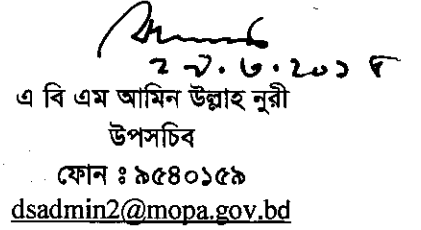 ২৯.৩.২০১৮
এ বি এম আমিন উল্লাহ নুরী
উপসচিব
ফোন ঃ ৯৫৪০১৫৯
dsadmin2@mopa.gov.bd